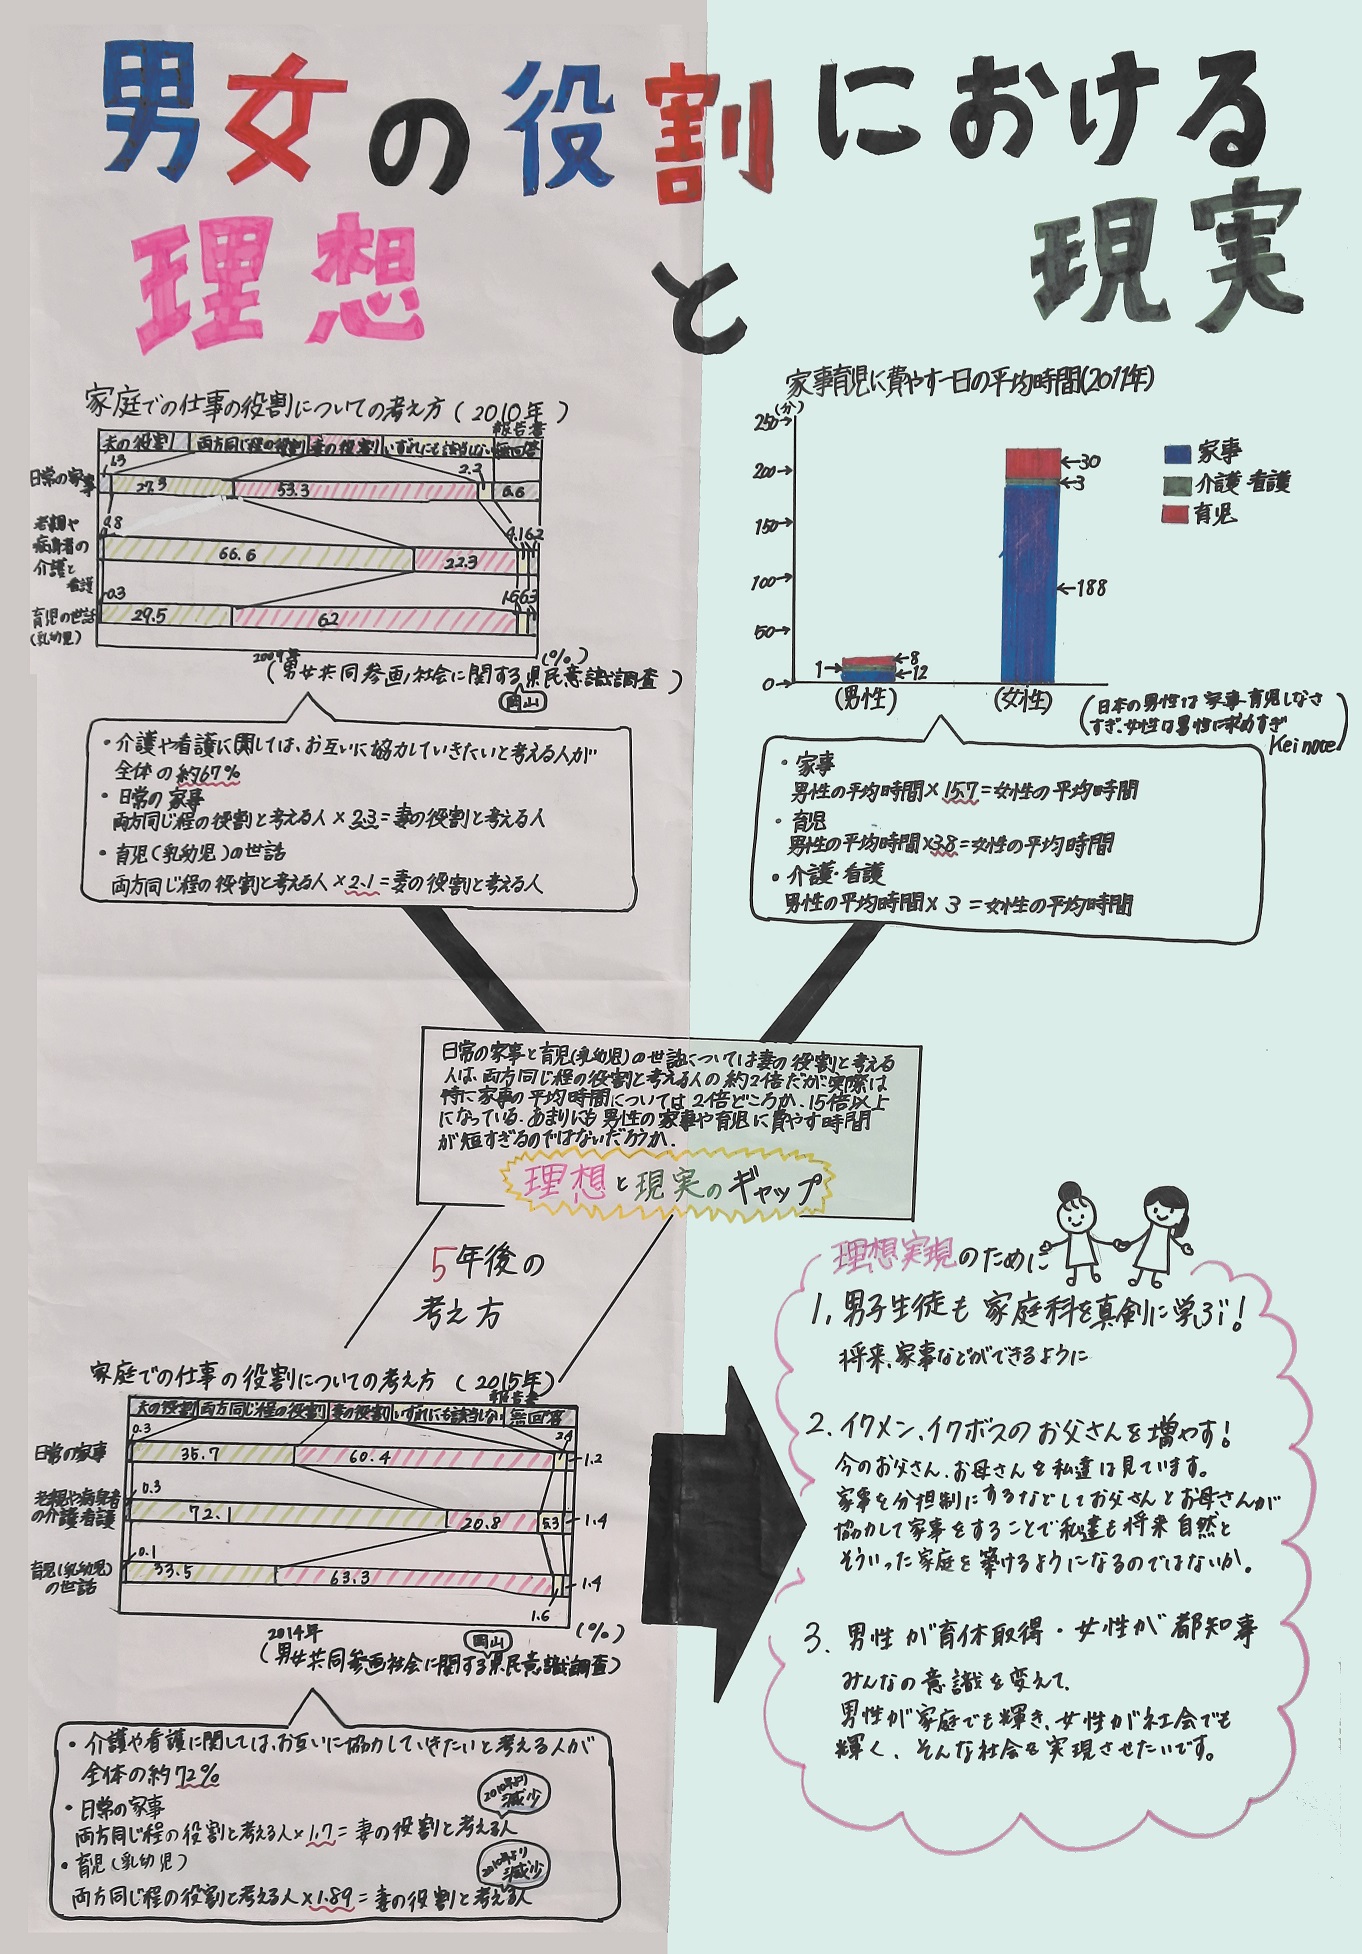 男女の役割における
理想と現実
家庭での仕事の役割についての考え方(2010年)
報告書
夫の役割 両方同じ程の役割 妻の役割 いずれにも該当しない 無回答
日常の家事
1.3 27.3 53.3 2.2 6.6
老親や
病身者の
介護と
看護
0.8 66.6 22.3 4.1 6.2
育児の世話
(乳幼児)
0.3 29.5 62 1.5 6.3
(%)
2009年
(男女共同参画社会に関する県民意識調査)
岡山
・介護や看護に関しては、お互いに協力していきたいと考える人が
全体の約67%
・日常の家事
両方同じ程の役割と考える人×2.3=妻の役割と考える人
・育児(乳幼児)の世話
両方同じ程の役割と考える人×2.1=妻の役割と考える人
家事育児に費やす一日の平均時間(2011年)
(分)
250
200
150
100
50
0
1 8 12
30
3
188
(男性) (女性)
家事
介護 看護
育児
(日本の男性は家事育児しなさ
すぎ、女性は男性に求めすぎ)
Kei note
・家事
男性の平均時間×15.7=女性の平均時間
・育児
男性の平均時間×3.8=女性の平均時間
・介護・看護
男性の平均時間×3=女性の平均時間
日常の家事と育児(乳幼児)の世話については妻の役割と考える
人は、両方同じ程の役割と考える人の約2倍だが実際は
特に家事の平均時間については2倍どころか、15倍以上
になっている。あまりにも男性の家事や育児に費やす時間
が短すぎるのではないだろうか。
理想と現実のギャップ
5年後の
考え方
家庭での仕事の役割についての考え方(2015年)
報告書
夫の役割 両方同じ程の役割 妻の役割 いずれにも該当しない 無回答
日常の家事
0.3 35.7 60.4 2.4 1.2
老親や病身者
の介護看護
0.3 72.1 20.8 5.3 1.4
育児(乳幼児)
の世話
0.1 33.5 63.3 1.6 1.4
(%)
2014年
岡山
(男女共同参画社会に関する県民意識調査)
・介護や看護に関しては、お互いに協力していきたいと考える人が
全体の約72%
・日常の家事
2010年より
減少
両方同じ程の役割と考える人×1.7=妻の役割と考える人
・育児(乳幼児)
2010年より
減少
両方同じ程の役割と考える人×1.89=妻の役割と考える人
理想実現のために
1. 男子生徒も家庭科を真剣に学ぶ!
将来、家事などができるように
2. イクメン、イクボスのお父さんを増やす!
今のお父さん、お母さんを私達は見ています。
家事を分担制にするなどしてお父さんとお母さんが
協力して家事をすることで私達も将来自然と
そういった家庭を築けるようになるのではないか。
3. 男性が育休取得・女性が都知事
みんなの意識を変えて、
男性が家庭でも輝き、女性が社会でも
輝く、そんな社会を実現させたいです。